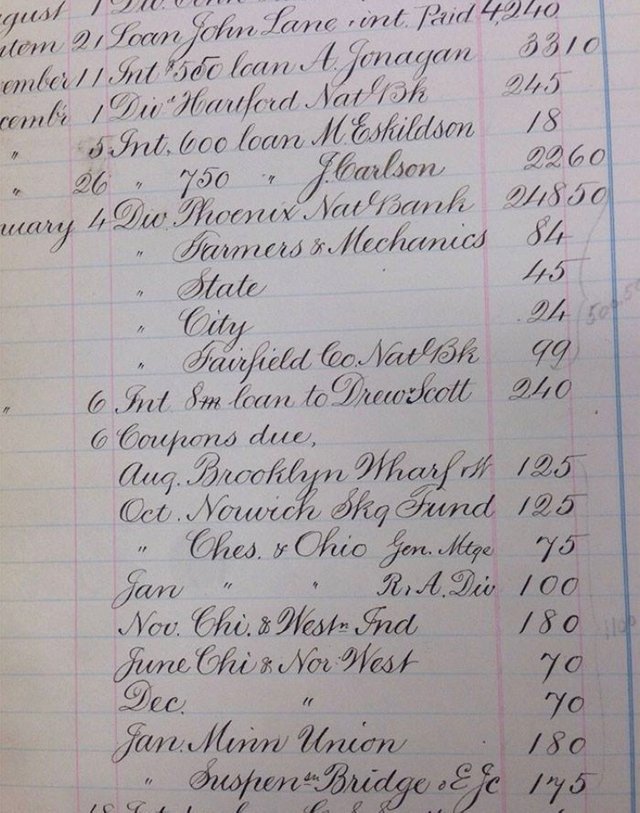 ugust 1 Div.
21 Loan John Lane & int. Paid 4,240
ember 11 Int $550 loan A. Jonagan 33 10
cembr 1 Div " Hartford Nat'l Bk 245
" 5 Int. 600 loan M. Eskildson 18
" 26 " 750 " J. Carlson 22 60
nuary 4 Div. Phoenix Nat'l Bank 248 50
" Farmers & Mechanics 84
" State 45
" City 24
" Fairfield Co. Nat'l Bk 99
" 6 Int 8m loan to Drew & Scott 240
6 Coupons due,
Aug. Brooklyn Wharf & W 125
Oct. Norwich Skg Fund 125
" Ches. & Ohio Gen. Mtge 75
Jan " " R. A. Div 100
Nov. Chi. & Westn Ind 180
June Chi & Nor West 70
Dec. " 70
Jan. Minn Union 180
" Suspensn Bridge & E Jc 175
18 Int